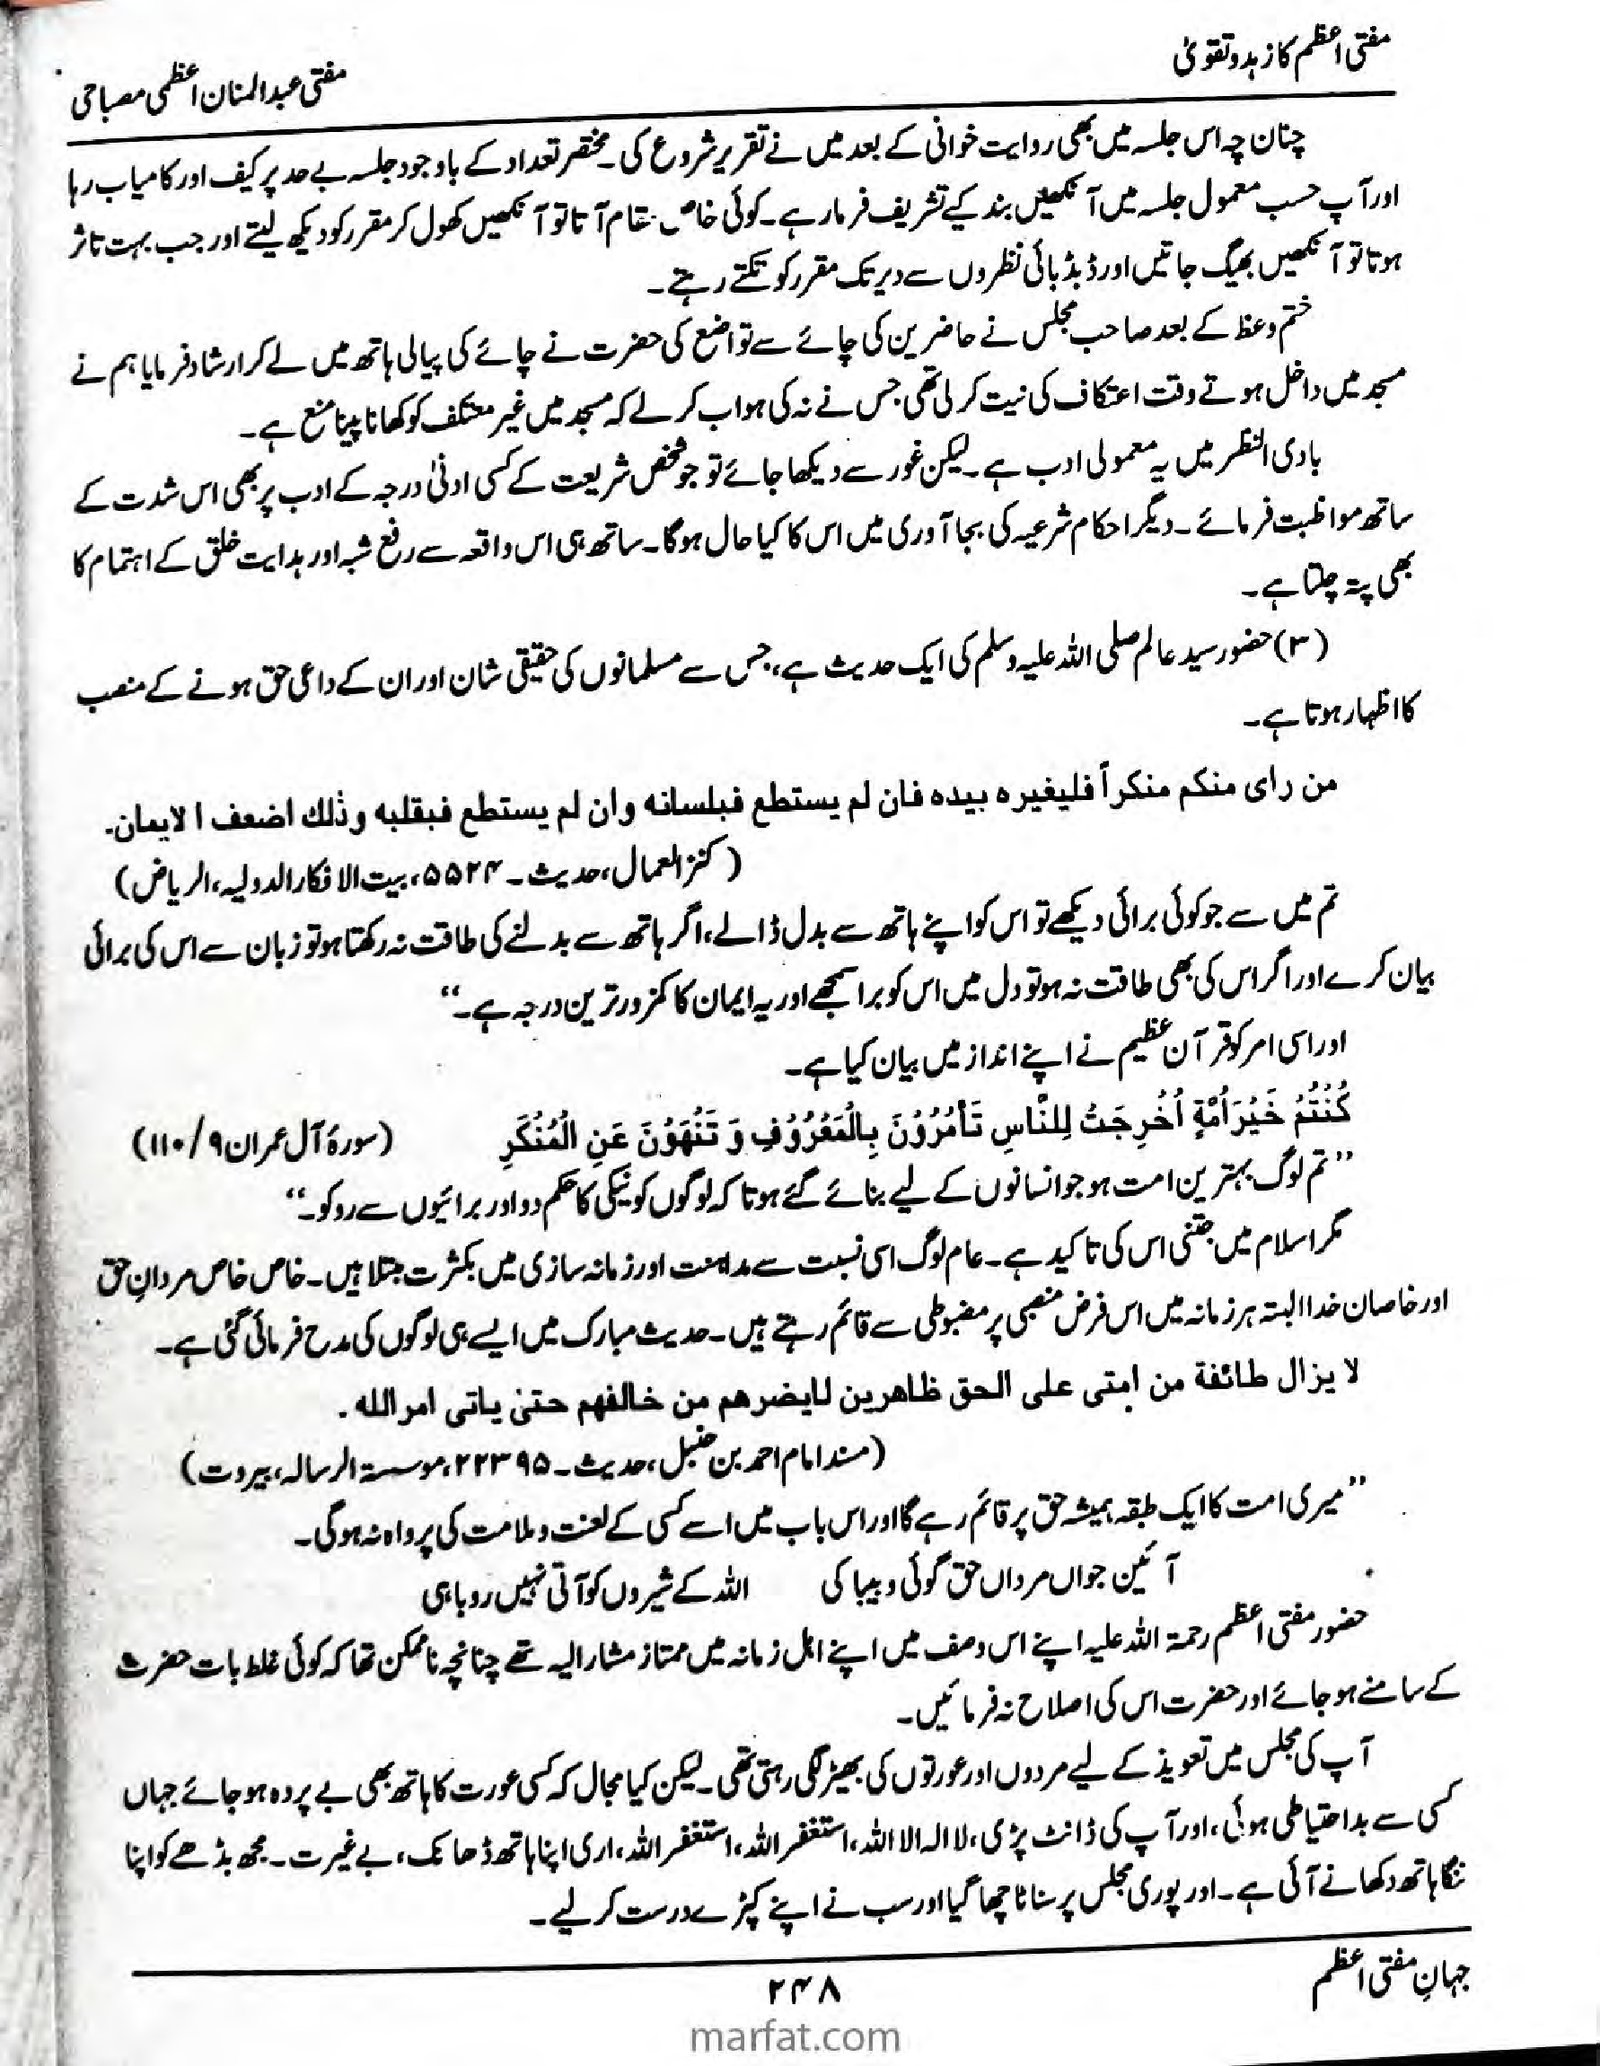 مفتی اعظم کا زہد وتقویٰ
مفتی عبدالمنان اعظمی مصباحی
چنان چہ اس جلسہ میں بھی روایت خوانی کے بعد میں نے تقریر شروع کی۔ مختصر تعداد کے باوجود جلسہ بے حد پر کیف اور کامیاب رہا
اور آپ حسب معمول جلسہ میں آنکھیں بند کیے تشریف فرما رہے۔ کوئی خاص مقام آتا تو آنکھیں کھول کر مقرر کو دیکھ لیتے اور جب بہت تاثر
ہوتا تو آنکھیں بھیگ جاتیں اور ڈبڈبائی نظروں سے دیر تک مقرر کو تکتے رہے۔
ختم وعظ کے بعد صاحب مجلس نے حاضرین کی چائے سے تواضع کی حضرت نے چائے کی پیالی ہاتھ میں لے کر ارشاد فرمایا ہم نے
مسجد میں داخل ہوتے وقت اعتکاف کی نیت کر لی تھی جس نے نہ کی ہو اب کر لے کہ مسجد میں غیر معتکف کو کھانا پینا منع ہے۔
بادی النظر میں یہ معمولی ادب ہے۔ لیکن غور سے دیکھا جائے تو جو شخص شریعت کے کسی ادنیٰ درجہ کے ادب پر بھی اس شدت کے
ساتھ مواظبت فرمائے۔ دیگر احکام شرعیہ کی بجا آوری میں اس کا کیا حال ہوگا۔ ساتھ ہی اس واقعہ سے رفع شبہ اور ہدایت خلق کے اہتمام کا
بھی پتہ چلتا ہے۔
(۳) حضور سید عالم صلی اللہ علیہ وسلم کی ایک حدیث ہے، جس سے مسلمانوں کی حقیقی شان اور ان کے داعی حق ہونے کے منصب
کا اظہار ہوتا ہے۔
من رای منکم منکراً فلیغیرہ بیدہ فان لم یستطع فبلسانه وان لم یستطع فبقلبه وذٰلك اضعف الایمان۔
(کنز العمال، حدیث۔ ۵۵۲۴، بیت الافکار الدولیہ، الریاض)
تم میں سے جو کوئی برائی دیکھے تو اس کو اپنے ہاتھ سے بدل ڈالے، اگر ہاتھ سے بدلنے کی طاقت نہ رکھتا ہو تو زبان سے اس کی برائی
بیان کرے اور اگر اس کی بھی طاقت نہ ہو تو دل میں اس کو برا سمجھے اور یہ ایمان کا کمزور ترین درجہ ہے۔“
اور اسی امر کو قرآن عظیم نے اپنے انداز میں بیان کیا ہے۔
كُنْتُمْ خَيْرَ اُمَّةٍ اُخْرِجَتْ لِلنَّاسِ تَأْمُرُوْنَ بِالْمَعْرُوْفِ وَ تَنْهَوْنَ عَنِ الْمُنْكَرِ (سورۂ آل عمران ۹/۱۱۰)
”تم لوگ بہترین امت ہو جو انسانوں کے لیے بنائے گئے ہو تا کہ لوگوں کو نیکی کا حکم دو اور برائیوں سے روکو۔“
مگر اسلام میں جتنی اس کی تاکید ہے۔ عام لوگ اسی نسبت سے مداہنت اور زمانہ سازی میں بکثرت مبتلا ہیں۔ خاص خاص مردانِ حق
اور خاصان خدا البتہ ہر زمانہ میں اس فرض منصبی پر مضبوطی سے قائم رہتے ہیں۔ حدیث مبارک میں ایسے ہی لوگوں کی مدح فرمائی گئی ہے۔
لا یزال طائفة من امتی علی الحق ظاهرین لایضرهم من خالفهم حتیٰ یاتی امر الله .
(مسند امام احمد بن حنبل، حدیث۔ ۲۲۳۹۵، موسسۃ الرسالہ، بیروت)
”میری امت کا ایک طبقہ ہمیشہ حق پر قائم رہے گا اور اس باب میں اسے کسی کے لعنت و ملامت کی پرواہ نہ ہوگی۔
آئین جواں مرداں حق گوئی و بیباکی اللہ کے شیروں کو آتی نہیں روباہی
حضور مفتی اعظم رحمۃ اللہ علیہ اپنے اس وصف میں اپنے اہل زمانہ میں ممتاز مشار الیہ تھے چنانچہ ناممکن تھا کہ کوئی غلط بات حضرت
کے سامنے ہو جائے اور حضرت اس کی اصلاح نہ فرمائیں۔
آپ کی مجلس میں تعویذ کے لیے مردوں اور عورتوں کی بھیڑ لگی رہتی تھی۔ لیکن کیا مجال کہ کسی عورت کا ہاتھ بھی بے پردہ ہو جائے جہاں
کسی سے بد احتیاطی ہوئی، اور آپ کی ڈانٹ پڑی، لا الہ الا اللہ، استغفر اللہ، استغفر اللہ، اری اپنا ہاتھ ڈھانک، بے غیرت۔ مجھ بڈھے کو اپنا
ننگا ہاتھ دکھانے آئی ہے۔ اور پوری مجلس پر سناٹا چھا گیا اور سب نے اپنے کپڑے درست کر لیے۔
جہانِ مفتی اعظم
۲۴۸
marfat.com